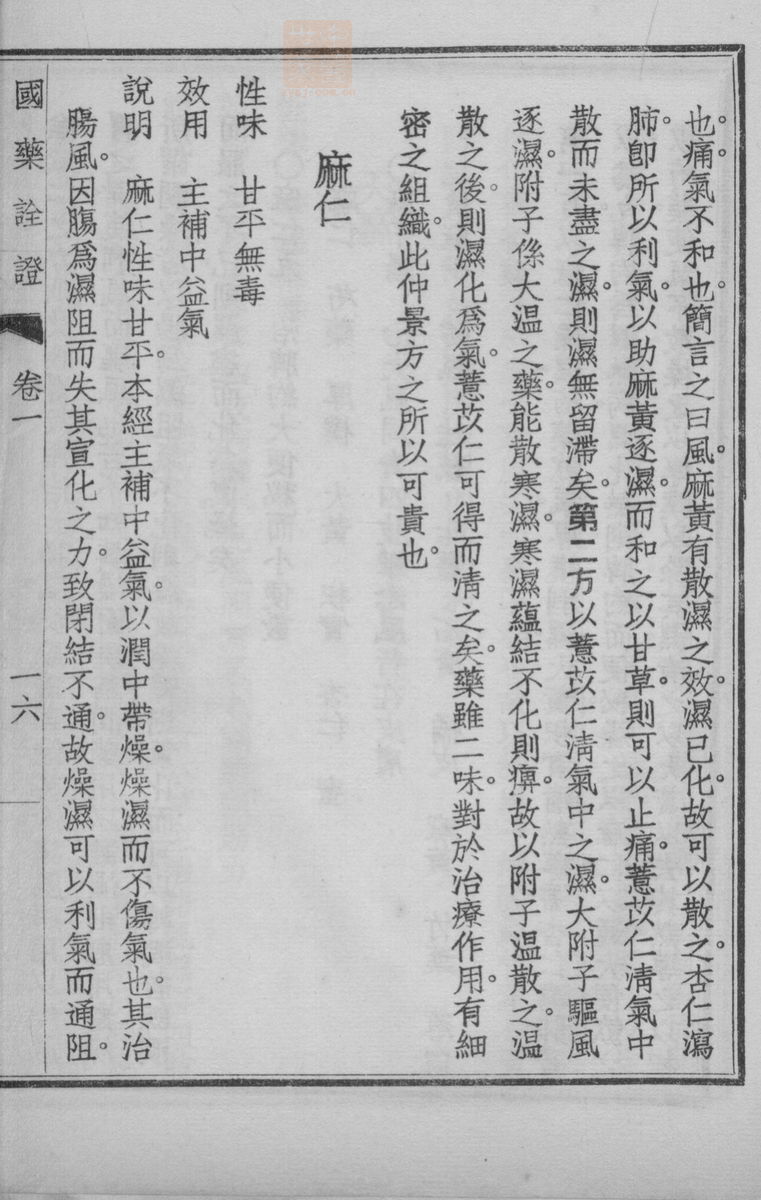 也。痛。氣不和也。簡言之曰風。麻黃有散濕之效。濕已化。故可以散之。杏仁瀉
肺。卽所以利氣。以助麻黃逐濕。而和之以甘草。則可以止痛。薏苡仁淸氣中
散而未盡之濕。則濕無留滯矣。第二方以薏苡仁淸氣中之濕。大附子驅風
逐濕。附子係大温之藥。能散寒濕。寒濕蘊結不化則痹。故以附子温散之。温
散之後。則濕化爲氣。薏苡仁可得而淸之矣。藥雖二味。對於治療作用。有細
密之組織。此仲景方之所以可貴也。
麻仁
性味　甘平無毒
效用　主補中益氣
說明　麻仁性味甘平。本經主補中益氣。以潤中帶燥。燥濕而不傷氣也。其治
腸風。因腸爲濕阻而失其宣化之力。致閉結不通。故燥濕可以利氣而通阻。
國藥詮證　卷一　一六